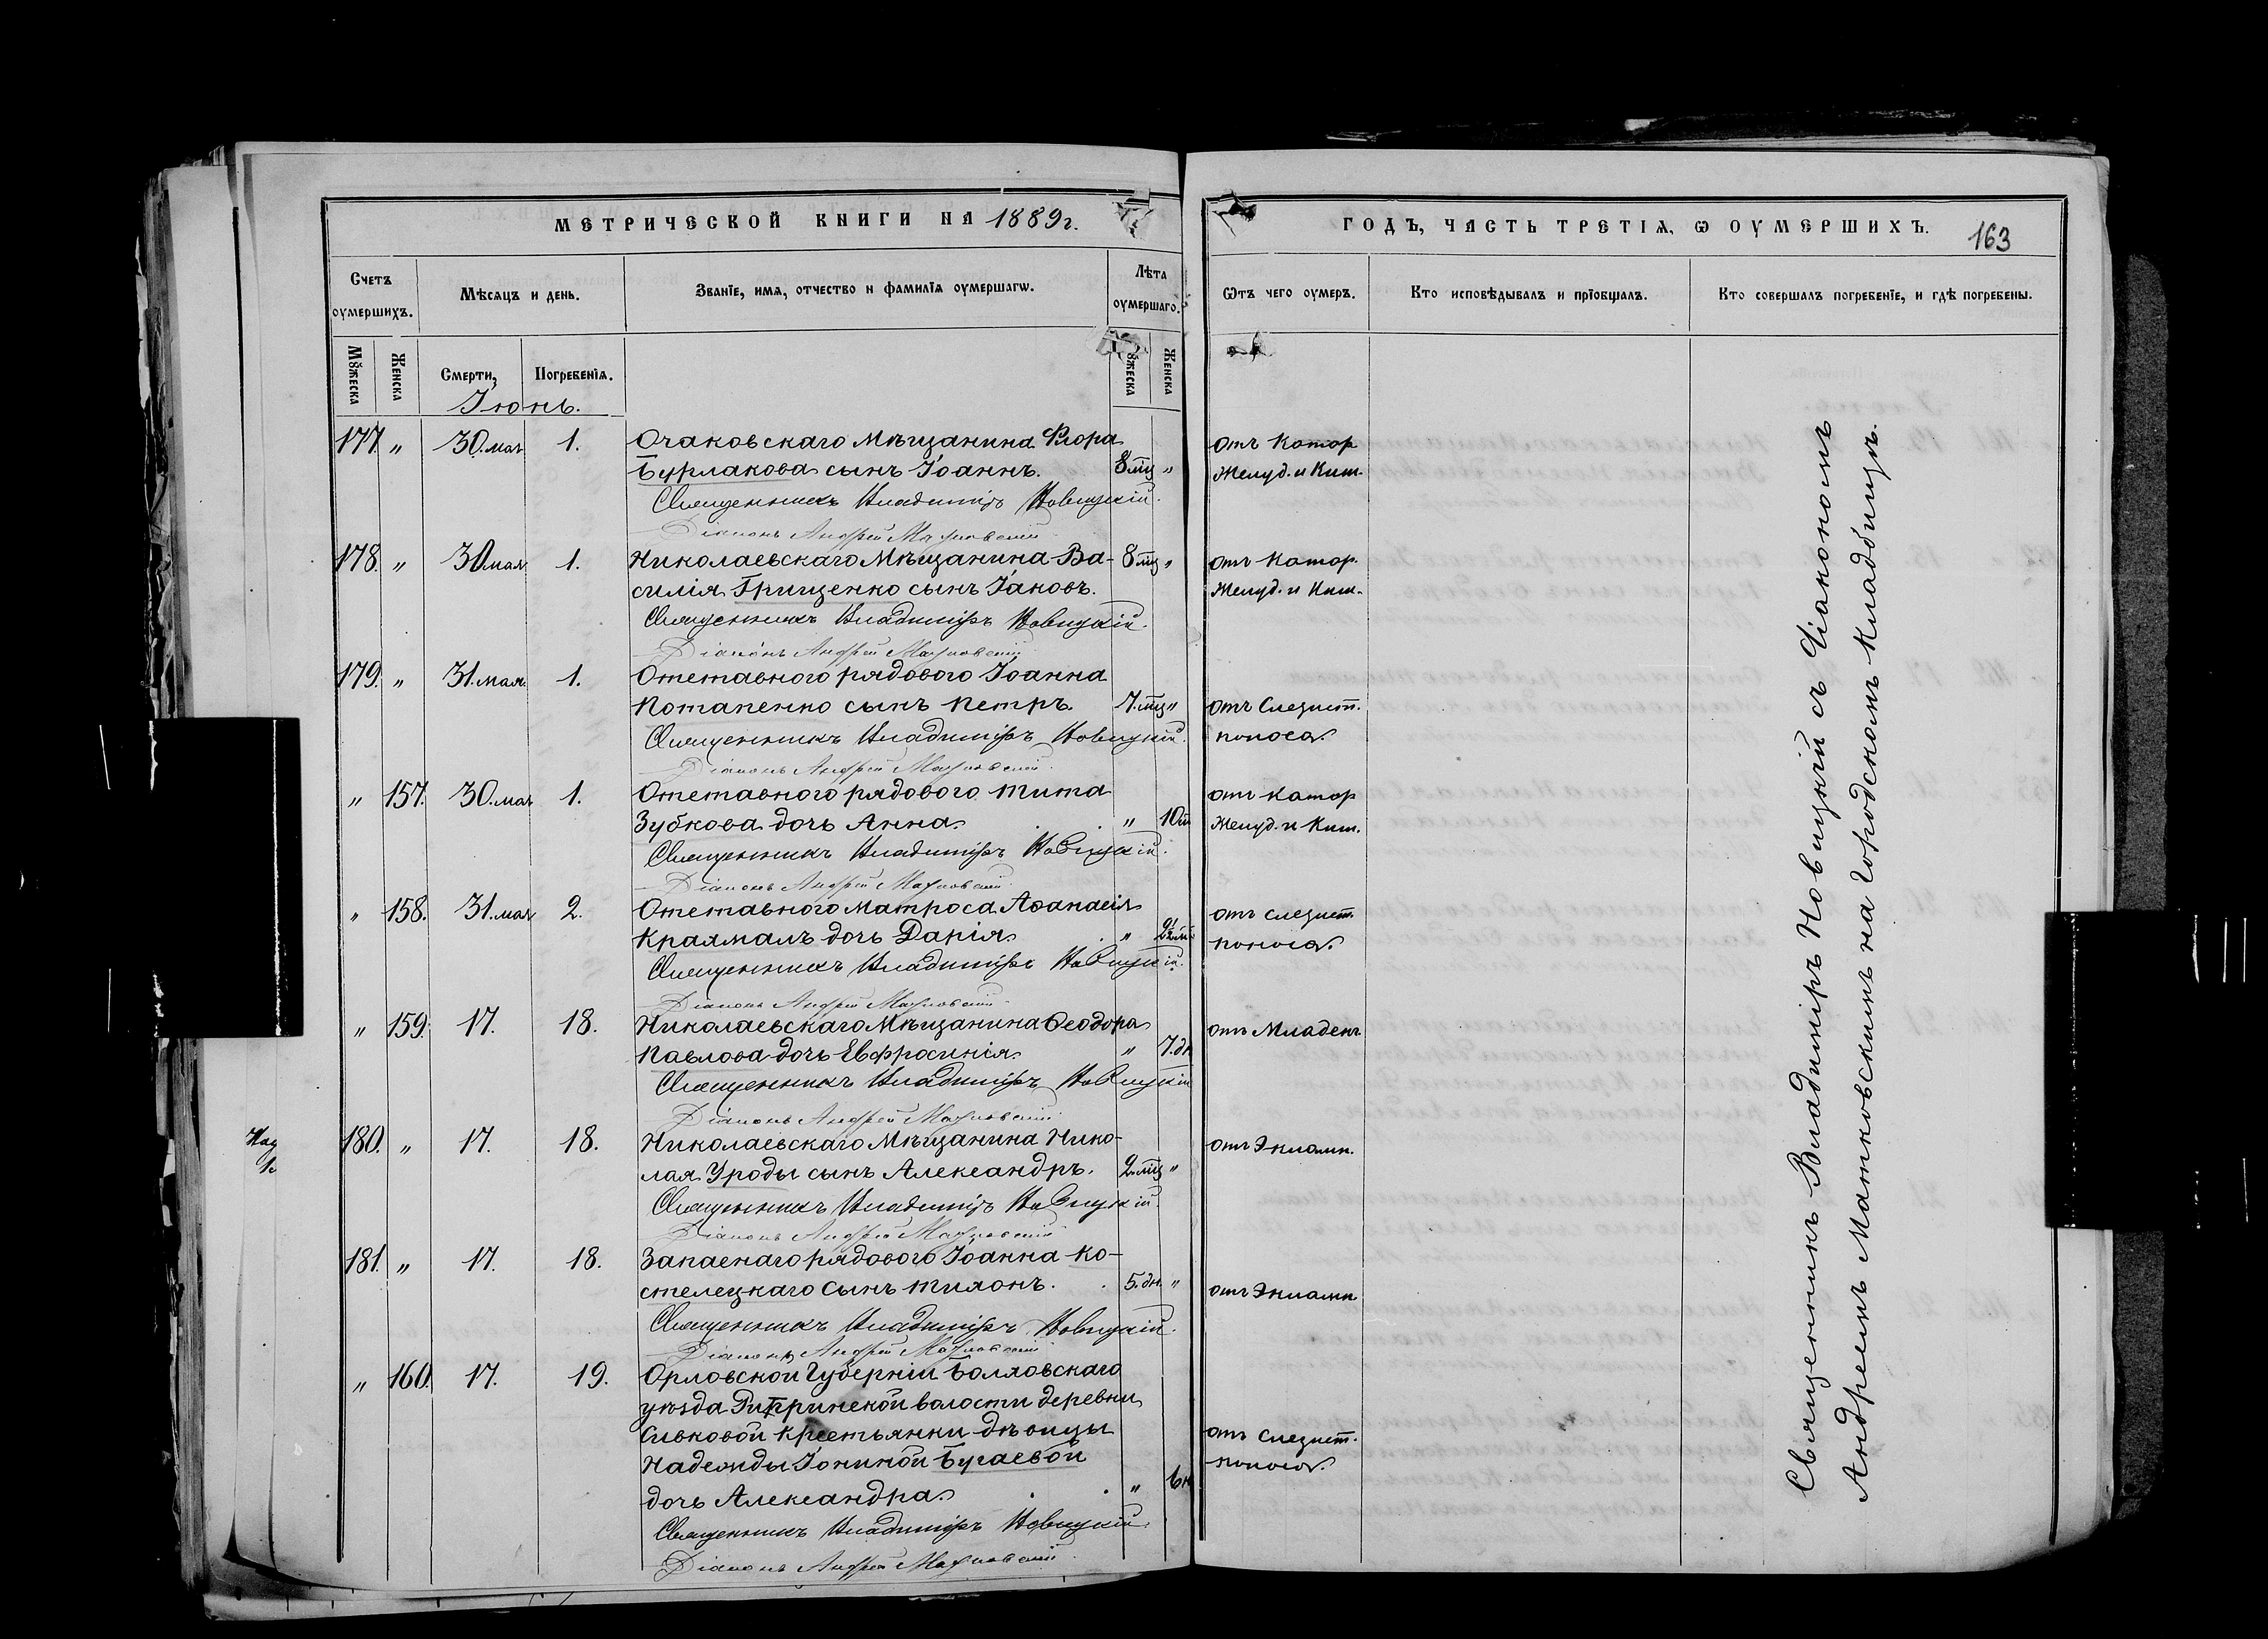 МЕТРИЧЕСКОЙ КНИГИ НА 1889г.
Счетъ оумершихъ.
Мѣсяцъ и день.
Званїе, имя, отчество и фамилїя оумершагѡ.
Лѣта оумершаго.
Мꙋжеска
Женска
Смерти,
Погребенїя.
Женска
Іюнь.
177. „ 30. мая 1. Очаковскаго Мѣщанина Флора
Бурлакова сынъ Іоаннъ. 8 мц „
Священникъ Владиміръ Новицкій.
Діаконъ Андрей
178. „ 30 мая 1. Николаевскаго Мѣщанина Ва- 8 мц „
силія Грищенко сынъ Іаковъ.
Священникъ Владиміръ Новицкій.
Діаконъ Андрей
179. „ 31. мая. 1. Отставного рядового Іоанна
Потапенко сынъ Петръ. 7. мц „
Священникъ Владиміръ Новицкій.
Діаконъ Андрей
„ 157. 30. мая 1. Отставного рядового Тита
Зубкова дочь Анна. „ 10 м
Священникъ Владиміръ Новицкій.
Діаконъ Андрей
„ 158. 31. мая 2. Отставного Матроса Аѳанасія
дочь Дарія. „
Священникъ Владиміръ Новицкій.
Діаконъ Андрей
„ 159. 17. 18. Николаевскаго Мѣщанина Ѳеодора
Павлова дочь Евфросинія. „ 7. дн
Священникъ Владиміръ Новицкій
Діаконъ Андрей
180. „ 17. 18. Николаевскаго Мѣщанина Нико-
лая Уроды сынъ Александръ. 2. мц „
Священникъ Владиміръ Новицкій.
Діаконъ Андрей
181. „ 17. 18. Запаснаго рядового Іоанна Ко-
стелецкаго сынъ Тихонъ. 5. дн. „
Священникъ Владиміръ Новицкій.
Діаконъ Андрей
„ 160. 17. 19. Орловской Губерніи Болховскаго
уѣзда волости деревни
Сивковой Крестьянки дѣвицы
Надежды Іониной Бугаевой
дочь Александра. „
Священникъ Владиміръ Новицкій.
Діаконъ Андрей
ГОДЪ, ЧАСТЬ ТРЕТІЯ, Ѡ ОУМЕРШИХЪ.
163
Ѿтъ чего оумеръ.
Кто исповѣдывалъ и прїобщалъ.
Кто совершалъ погребенїе, и гдѣ погребены.
отъ Катор
Желуд. и Киш.
отъ Катор.
Желуд. и Киш.
отъ Слезист.
поноса.
отъ Катор
Желуд. и Киш.
отъ слезист.
поноса.
отъ Младен.
отъ Экламп.
отъ Экламп
отъ слезист.
поноса.
Священникъ Владиміръ Новицкій съ Діакономъ
Андреемъ на городскомъ кладбищѣ.